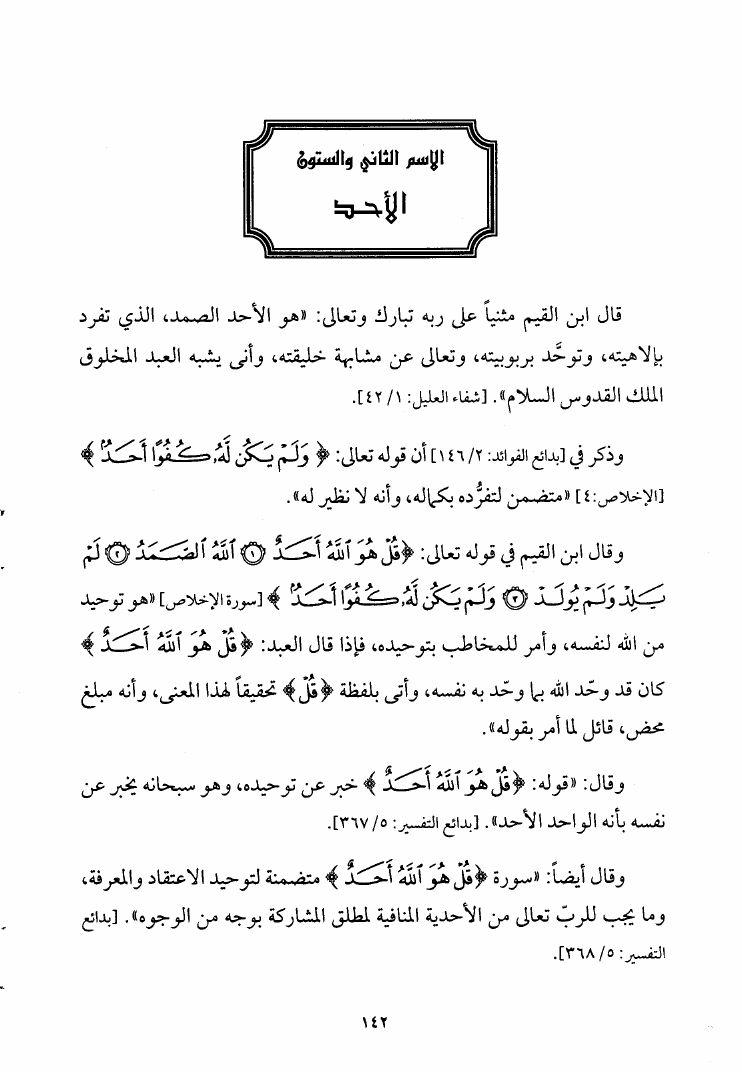 الاسم الثاني والستون
الأحد
قال ابن القيم مثنياً على ربه تبارك وتعالى: «هو الأحد الصمد، الذي تفرد
بإلاهيته، وتوحَّد بربوبيته، وتعالى عن مشابهة خليقته، وأنى يشبه العبد المخلوق
الملك القدوس السلام». [شفاء العليل: ١/ ٤٢].
وذكر في [بدائع الفوائد: ٢/ ١٤٦] أن قوله تعالى: ﴿وَلَمْ يَكُن لَّهُۥ كُفُوًا أَحَدٌۢ﴾
[الإخلاص:٤] «متضمن لتفرُّده بكماله، وأنه لا نظير له».
وقال ابن القيم في قوله تعالى: ﴿قُلْ هُوَ ٱللَّهُ أَحَدٌ ۝١ ٱللَّهُ ٱلصَّمَدُ ۝٢ لَمْ
يَلِدْ وَلَمْ يُولَدْ ۝٣ وَلَمْ يَكُن لَّهُۥ كُفُوًا أَحَدٌۢ﴾ [سورة الإخلاص] «هو توحيد
من الله لنفسه، وأمر للمخاطب بتوحيده، فإذا قال العبد: ﴿قُلْ هُوَ ٱللَّهُ أَحَدٌ﴾
كان قد وحّد الله بما وحّد به نفسه، وأتى بلفظة ﴿قُلْ﴾ تحقيقاً لهذا المعنى، وأنه مبلغ
محض، قائل لما أمر بقوله».
وقال: «قوله: ﴿قُلْ هُوَ ٱللَّهُ أَحَدٌ﴾ خبر عن توحيده، وهو سبحانه يخبر عن
نفسه بأنه الواحد الأحد». [بدائع التفسير: ٥/ ٣٦٧].
وقال أيضاً: «سورة ﴿قُلْ هُوَ ٱللَّهُ أَحَدٌ﴾ متضمنة لتوحيد الاعتقاد والمعرفة،
وما يجب للربّ تعالى من الأحدية المنافية لمطلق المشاركة بوجه من الوجوه». [بدائع
التفسير: ٥/ ٣٦٨].
١٤٢